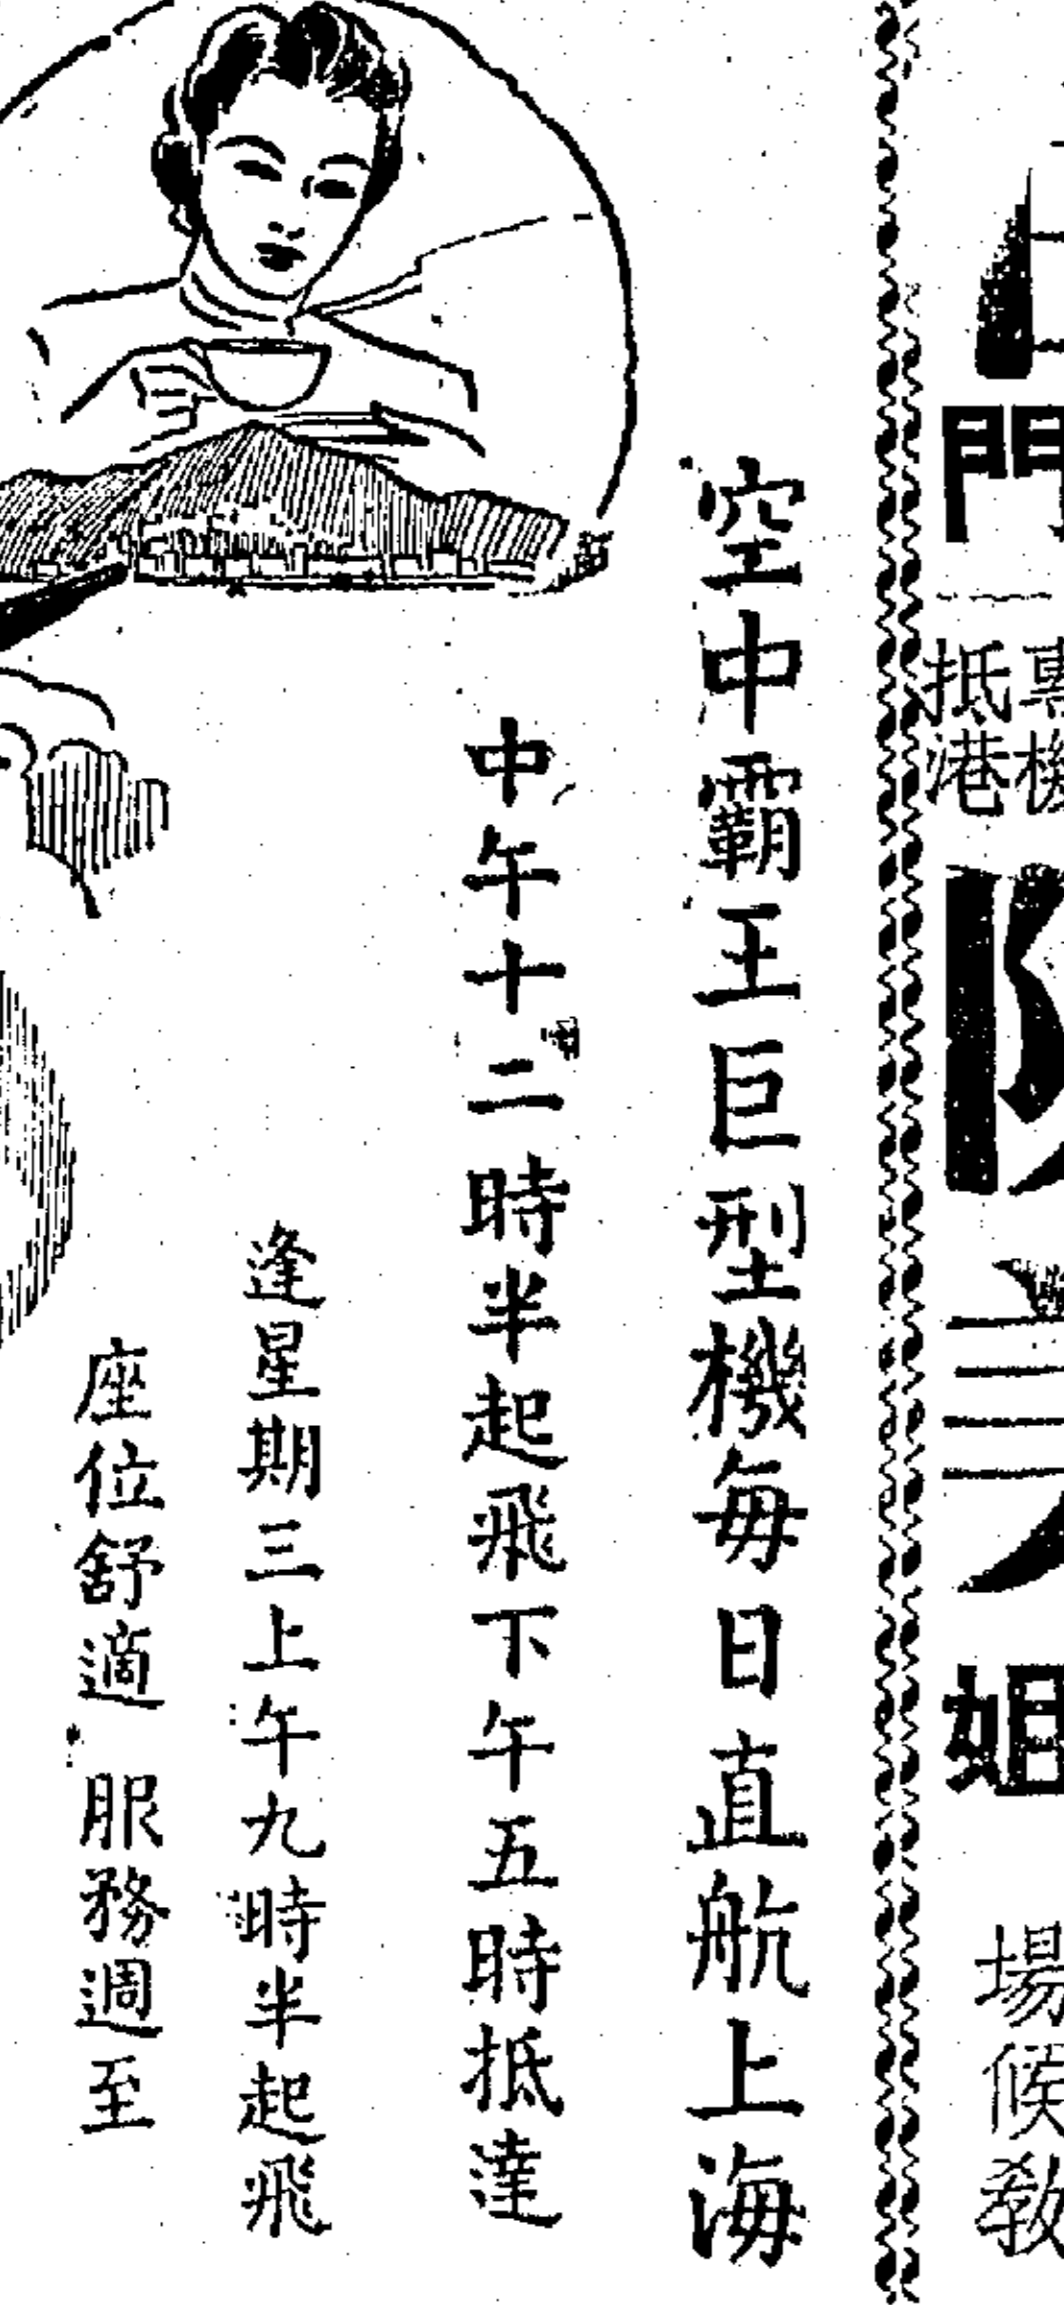 門
專機
抵港
姐
場候教
空中霸王巨型機每日直航上海
中午十二時半起飛下午五時抵達
逢星期三上午九時半起飛
座位舒適 服務週至